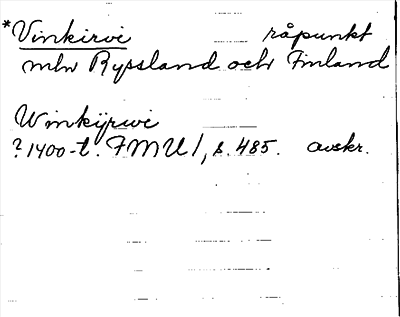 *Vinkirvi råpunkt
mln Ryssland och Finland
Winkijrwi
? 1400-t. FMU 1, s. 485. avskr.